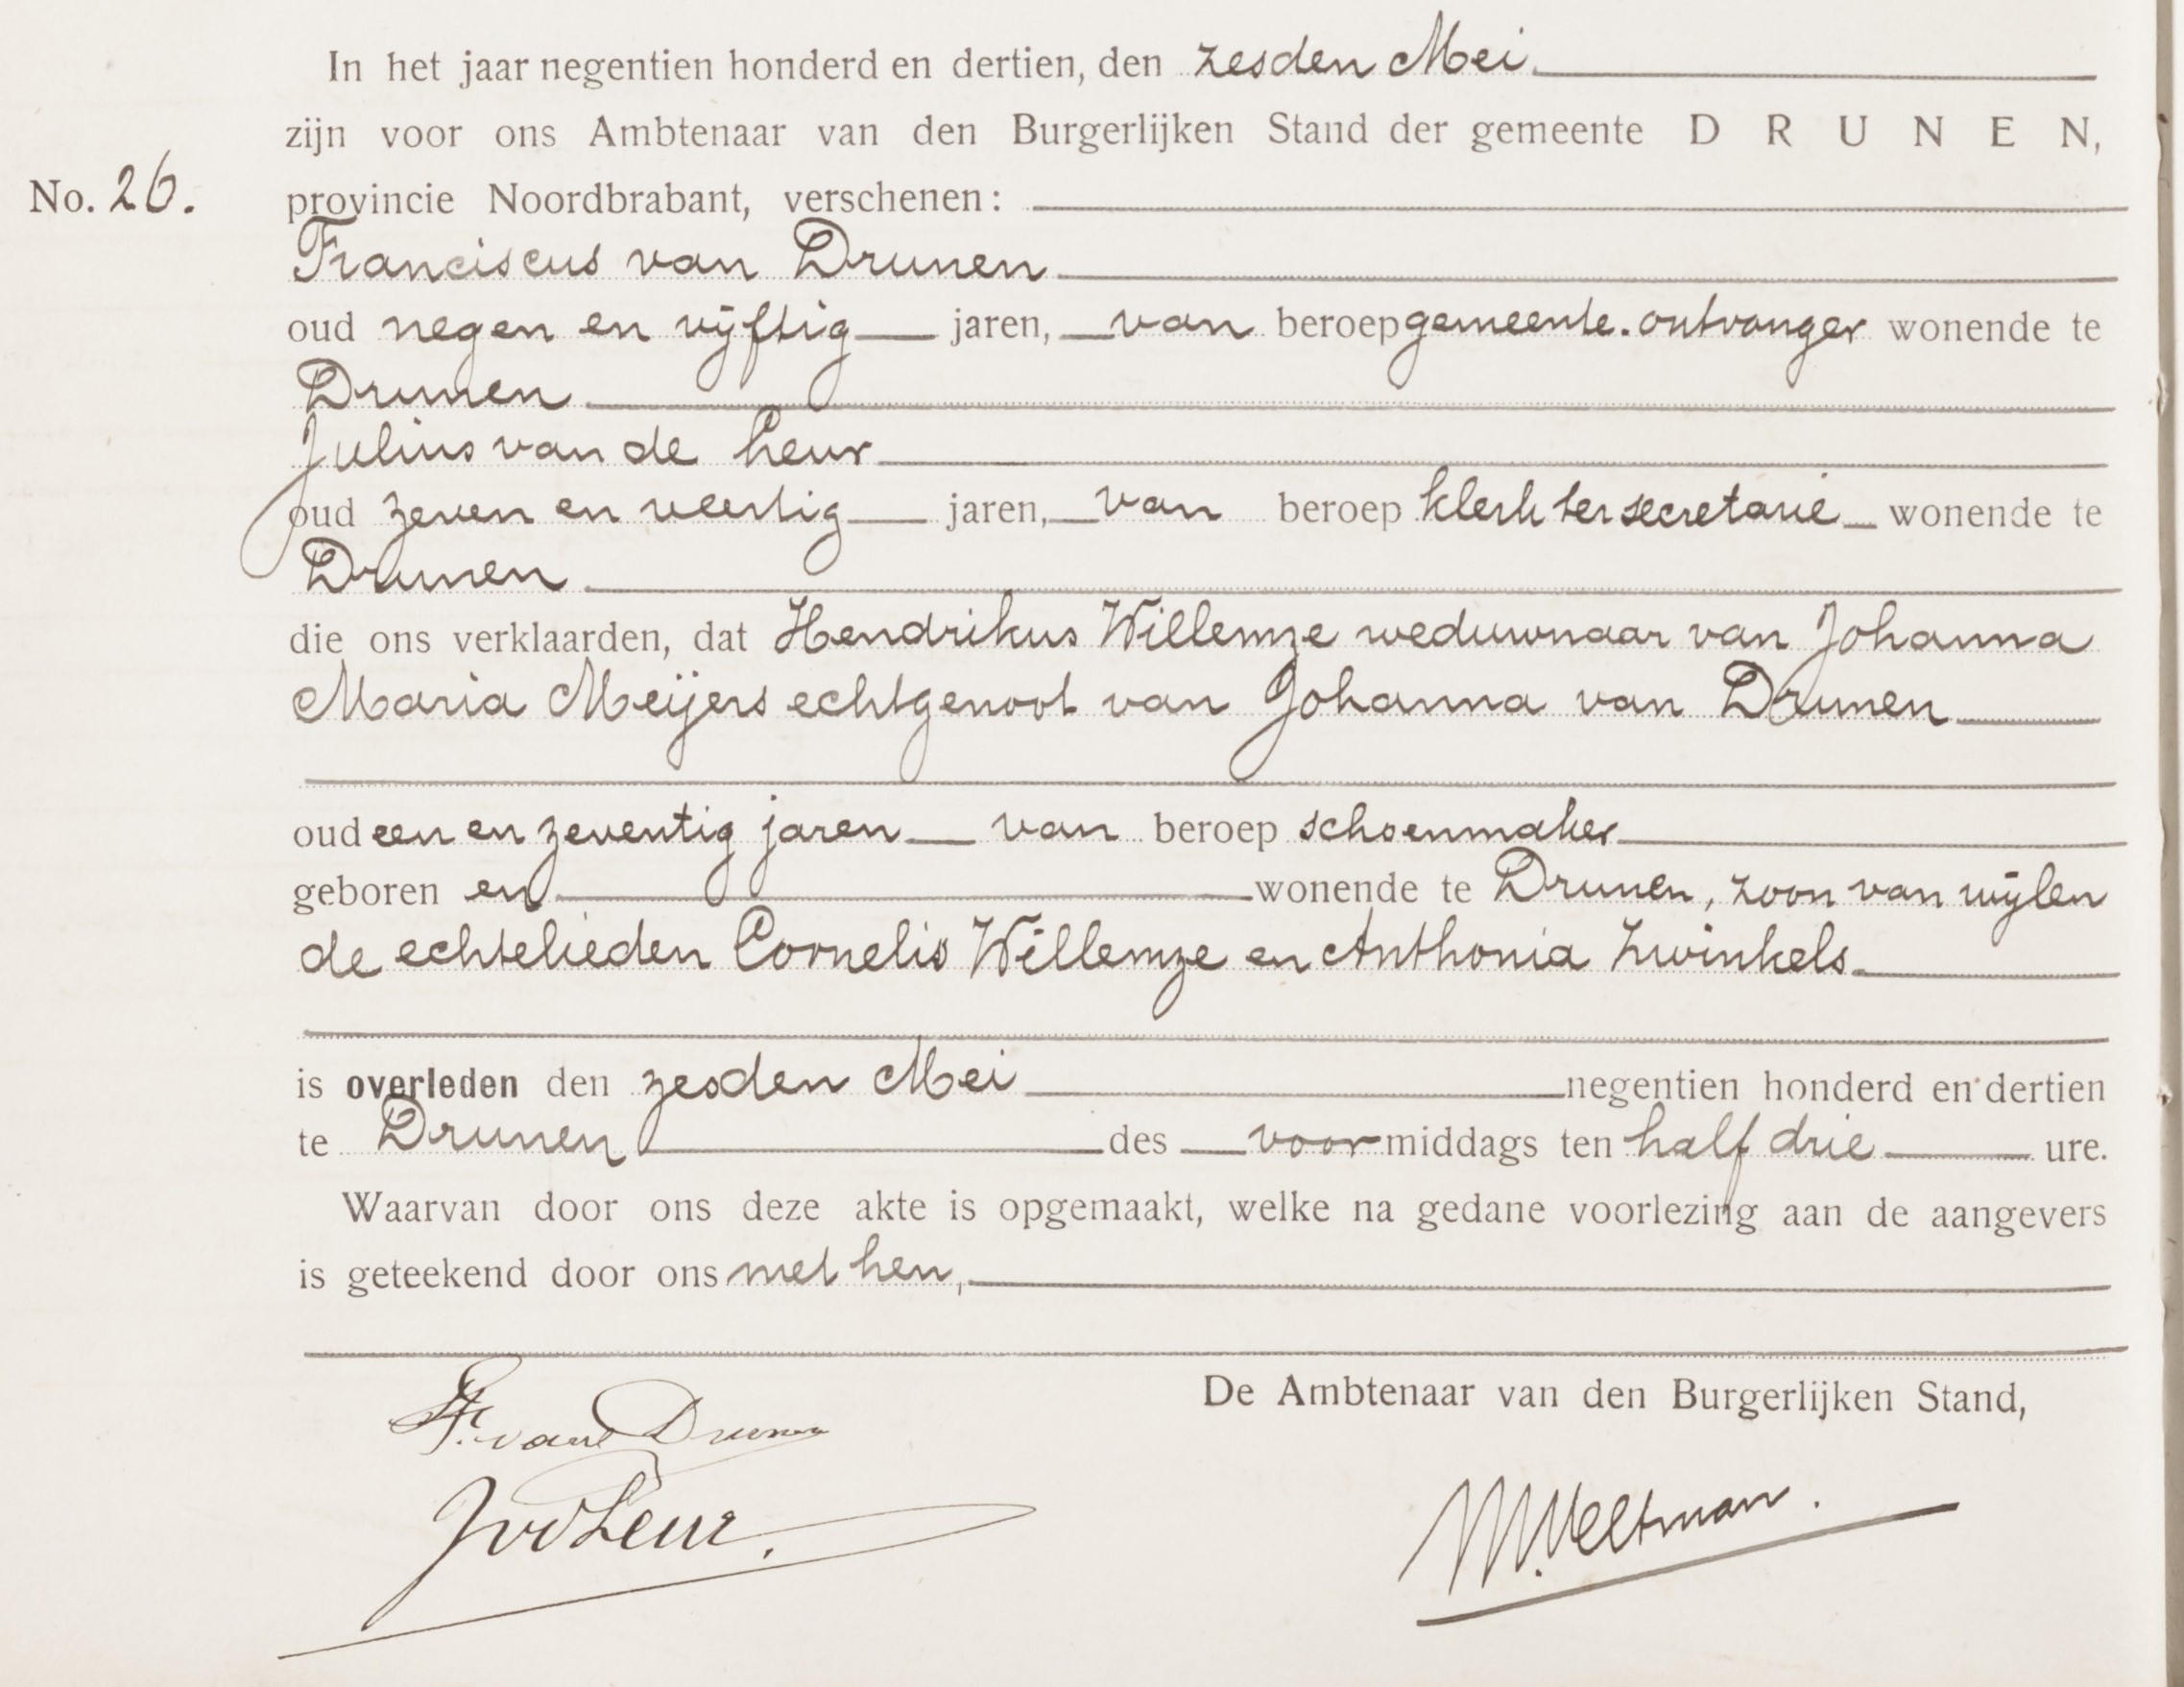 In het jaar negentien honderd en dertien, den zesden Mei
zijn voor ons Ambtenaar van den Burgerlijken Stand der gemeente D R U N E N,
No. 26. provincie Noordbrabant, verschenen:
Franciscus van Drunen
oud negen en vijftig jaren, van beroep gemeente-ontvanger wonende te
Drunen
Julius van de Leur
oud zeven en veertig jaren, van beroep klerk ter secretarie wonende te
Drunen
die ons verklaarden, dat Hendrikus Willemze weduwnaar van Johanna
Maria Meijers echtgenoot van Johanna van Drunen
oud een en zeventig jaren van beroep schoenmaker
geboren en wonende te Drunen, zoon van wijlen
de echtelieden Cornelis Willemze en Anthonia Zwinkels
is overleden den zesden Mei negentien honderd en dertien
te Drunen des voormiddags ten half drie ure.
Waarvan door ons deze akte is opgemaakt, welke na gedane voorlezing aan de aangevers
is geteekend door ons met hen,
De Ambtenaar van den Burgerlijken Stand,
F. van Drunen
JvdLeur.
M. Veltman.